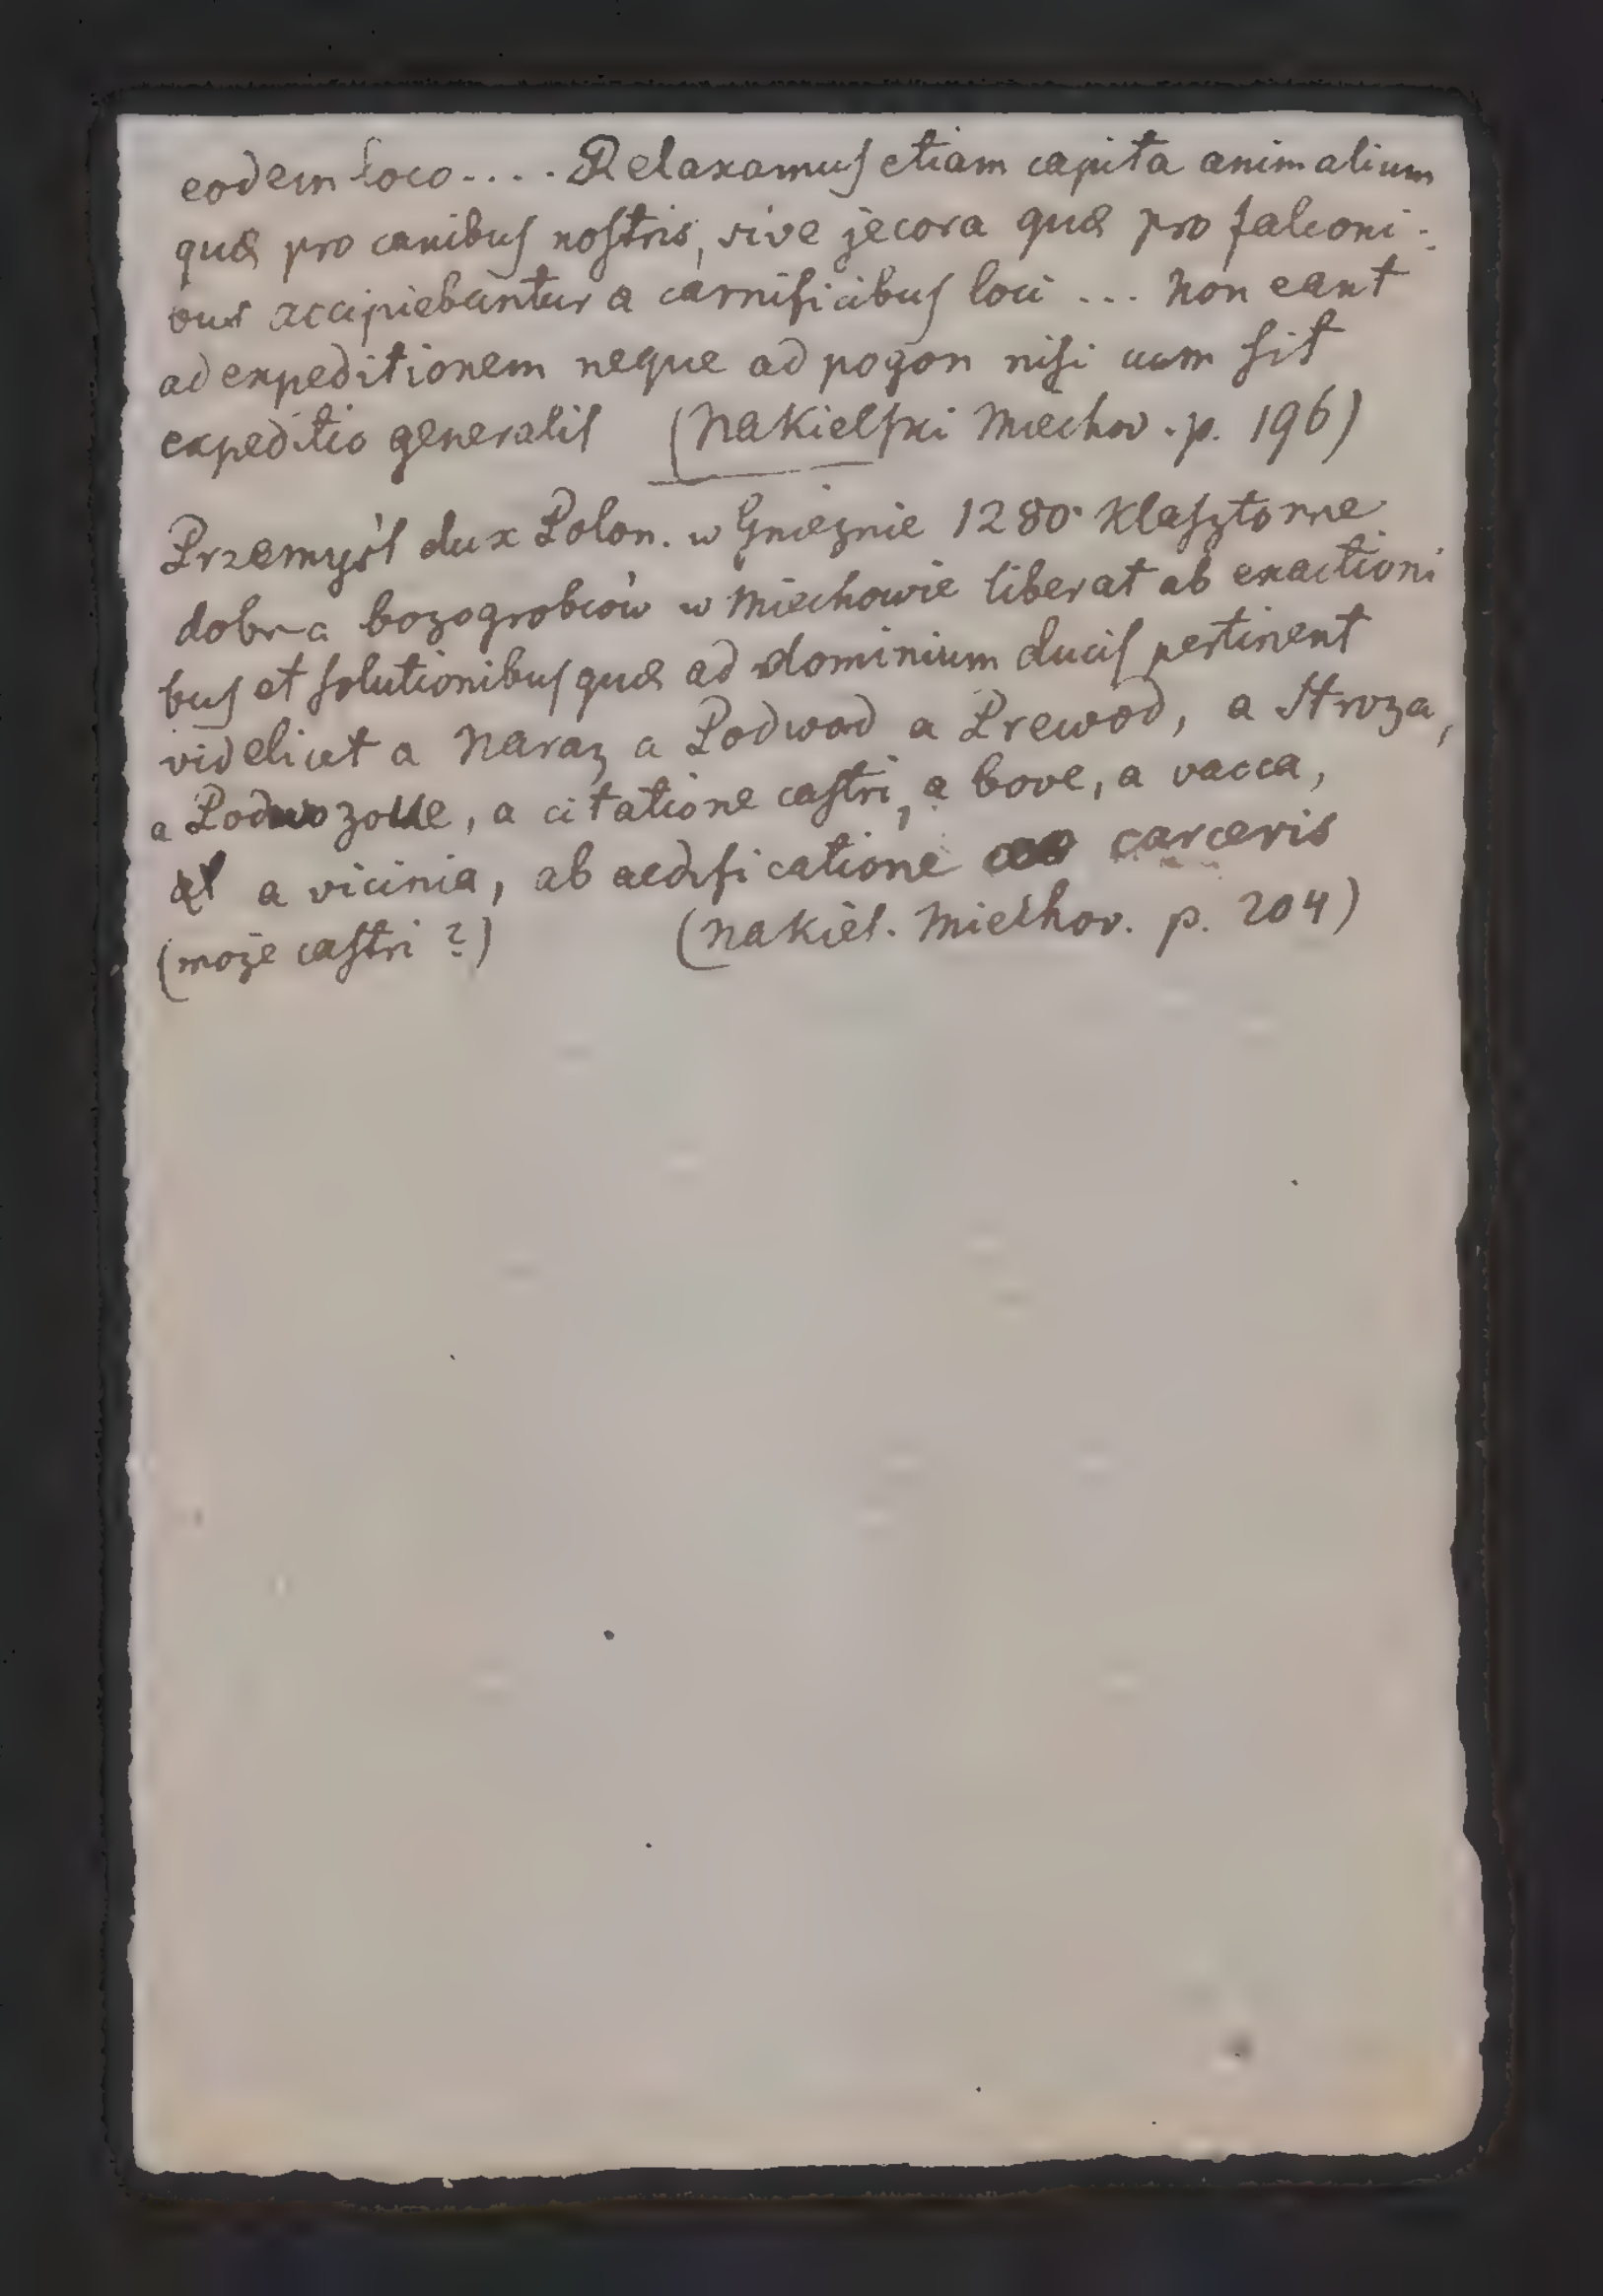 eodem loco.... Relaxamus etiam capita animalium
quæ pro canibus nostris, sive jecora quæ pro falconi-
bus accipiebantur a carnificibus loci ... non eant
ad expeditionem neque ad pogon nisi cum sit
expeditio generalis (Nakielski Miechov. p. 196)
Przemyśl dux Polon. w Gnieznie 1280 klasztorne
dobra bozogrobców w Miechowie liberat ab exactioni
bus et solutionibus quæ ad dominium ducis pertinent
videlicet a Naraz a Podwod a Prewod, a Stroza,
a Podwozove, a citatione castri, a bove, a vacca,
a vicinia, ab aedificatione carceris
(może castri ?) (Nakiel. Miechov. p. 204)